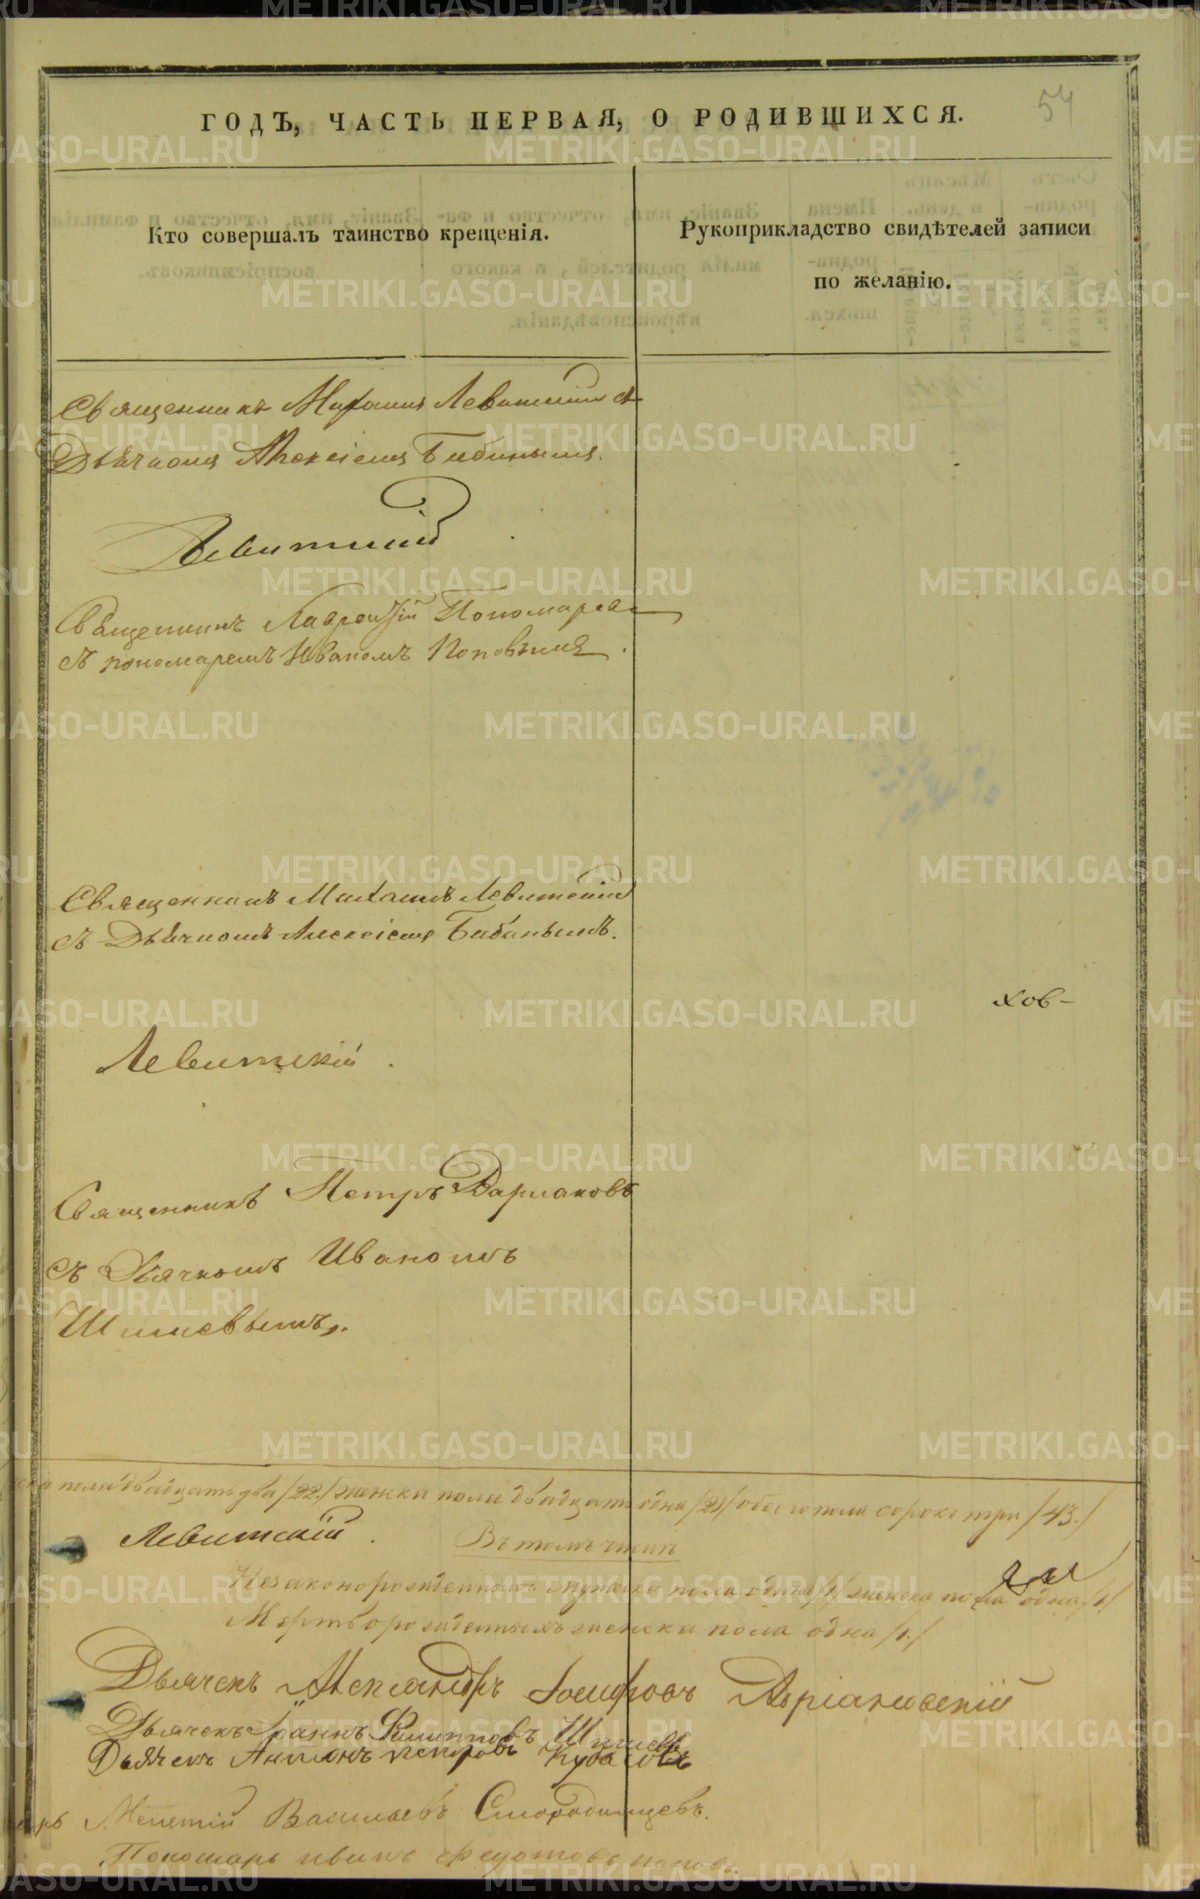 54
ГОДЪ, ЧАСТЬ ПЕРВАЯ, О РОДИВШИХСЯ.
Кто совершалъ таинство крещенія.
Рукоприкладство свидѣтелей записи
по желанію.
Священникъ Михаилъ Левитскій съ
Дьячкомъ Алексіемъ Бабинымъ.
Левитскій
Священникъ Лаврентій Пономаревъ
съ пономаремъ Иваномъ Поповымъ.
Священникъ Михаилъ Левитскій
съ Дьячкомъ Алексіемъ Бабинымъ.
хов-
Левитскій.
Священникъ Петръ
съ Дьячкомъ Иваномъ
Шишевымъ.
пола двадцать два /22/ женска пола двадцать одна /21/ обоего пола сорокъ три /43./
Левитскій.
Въ томъ числѣ
Незаконорожденныхъ мужска пола одинъ /1/ женска пола одна /1/
Мертворожденныхъ женска пола одна /1./
Дьячекъ Александръ Іосифовъ Адріановскій
Дьячекъ Іоаннъ Филипповъ Шишевъ
Дьячекъ Антонъ Петровъ Кубасовъ
арь Мелетій Васильевъ Смородинцевъ.
Пономарь Иванъ Федотовъ Поповъ.
METRIKI.GASO-URAL.RU